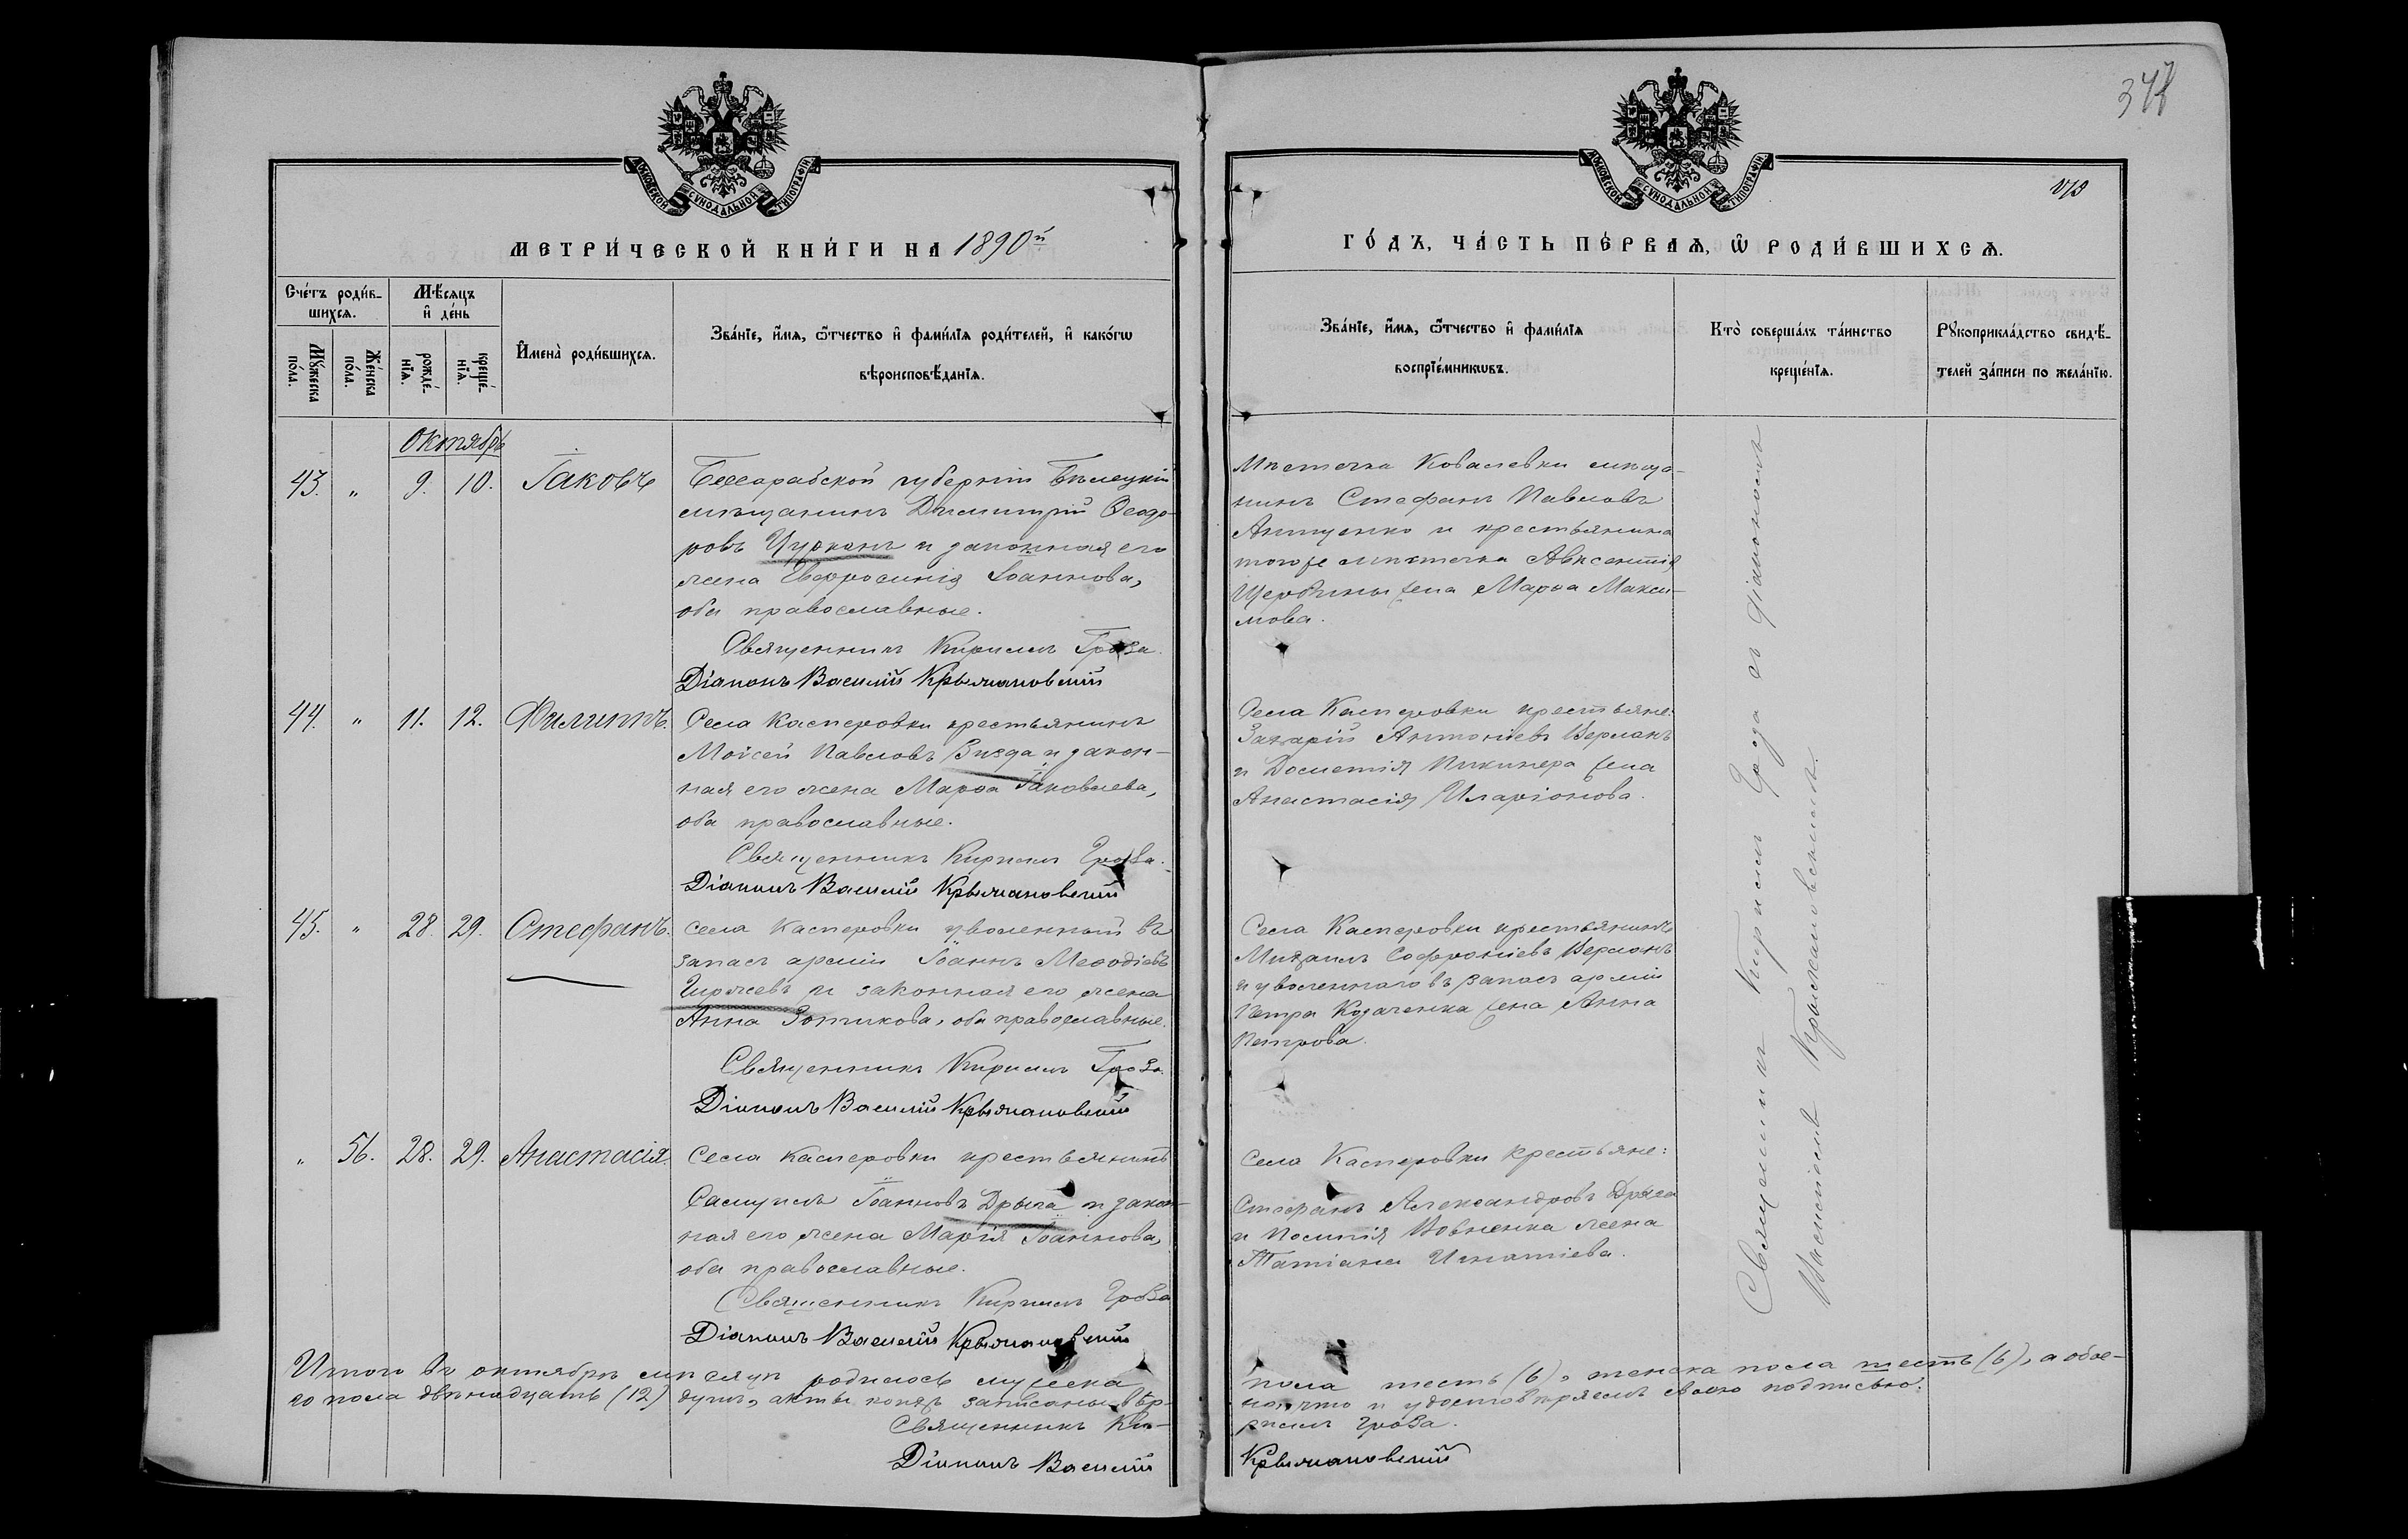 347
МОСКОВСКОЙ СѴНОДАЛЬНОЙ ТѴПОГРАФІИ
МОСКОВСКОЙ СѴНОДАЛЬНОЙ ТѴПОГРАФІИ
МЕТРИ́ЧЕСКОЙ КНИ́ГИ НА 1890й
ГО́ДЪ, ЧА́СТЬ ПЕ́РВАѦ, Ѿ РОДИ́ВШИХСѦ.
Сче́тъ роди́в-
шихсѧ.
Мꙋ́жеска по́ла.
Же́нска по́ла.
Мѣ́сѧцъ
и҆ де́нь
рожде́-нїѧ.
креще́-нїѧ.
И҆мена̀ роди́вшихсѧ.
Зва́нїе, и҆́мѧ, ѻ҆́тчество и҆ фами́лїѧ роди́телей, и҆ како́гѡ
вѣроисповѣ́данїѧ.
Зва́нїе, и҆́мѧ, ѻ҆́тчество и҆ фами́лїѧ
воспрїе́мникѡвъ.
Кто̀ соверша́лъ та́инство
креще́нїѧ.
Рꙋкоприкла́дство свидѣ́-
телей за́писи по жела́нїю.
Октябрь
43. " 9. 10. Іаковъ
Бессарабской губерніи Бѣлецкій
мѣщанинъ Димитрій Ѳеодо-
ровъ Цурканъ и законная его
жена Евфросинія Іоаннова,
оба православные.
Священникъ Кириллъ Гроза.
Діаконъ Василій Крыжановскій
Мѣстечка Ковалевки мѣща-
нинъ Стефанъ Павловъ
Антщенко и крестьянина
тогоже мѣстечка Авксентія
Щербины жена Марѳа Макси-
мова.
44. " 11. 12. Филиппъ.
Села Касперовки крестьянинъ
Моисей Павловъ Визда и закон-
ная его жена Марѳа Іаковлева,
оба православные.
Священникъ Кириллъ Гроза.
Діаконъ Василій Крыжановскій
Села Касперовки крестьяне:
Захарій Антоніевъ Верланъ
и Дометія Пикинера жена
Анастасія Иларіонова.
45. " 28. 29. Стефанъ.
Села Касперовки уволенный въ
запасъ арміи Іоаннъ Меѳодіевъ
Гиржевъ и законная его жена
Анна Зотикова, оба православные.
Священникъ Кириллъ Гроза.
Діаконъ Василій Крыжановскій
Села Касперовки крестьянинъ
Михаилъ Софроніевъ Верланъ
и уволеннаго въ запасъ арміи
Петра Козаченка жена Анна
Петрова.
" 56. 28. 29. Анастасія.
Села Касперовки крестьянинъ
Самуилъ Іоанновъ Дрыга и закон-
ная его жена Марія Іоаннова,
оба православные.
Священникъ Кириллъ Гроза
Діаконъ Василій Крыжановскій
Села Касперовки крестьяне:
Стефанъ Александровъ Дрыга
и Вовненка жена
Татіана Игнатіева.
Священникъ Кириллъ Гроза съ діакономъ
Василіемъ Крыжановскимъ.
Итого въ октябрѣ мѣсяцѣ родилось мужеска
пола шесть (6), женска пола шесть (6), а обое-
го пола двѣнадцать (12) душъ, акты коихъ записаны вѣр-
но, что и удостовѣряемъ своею подписью:
Священникъ Ки-
риллъ Гроза.
Діаконъ Василій
Крыжановскій